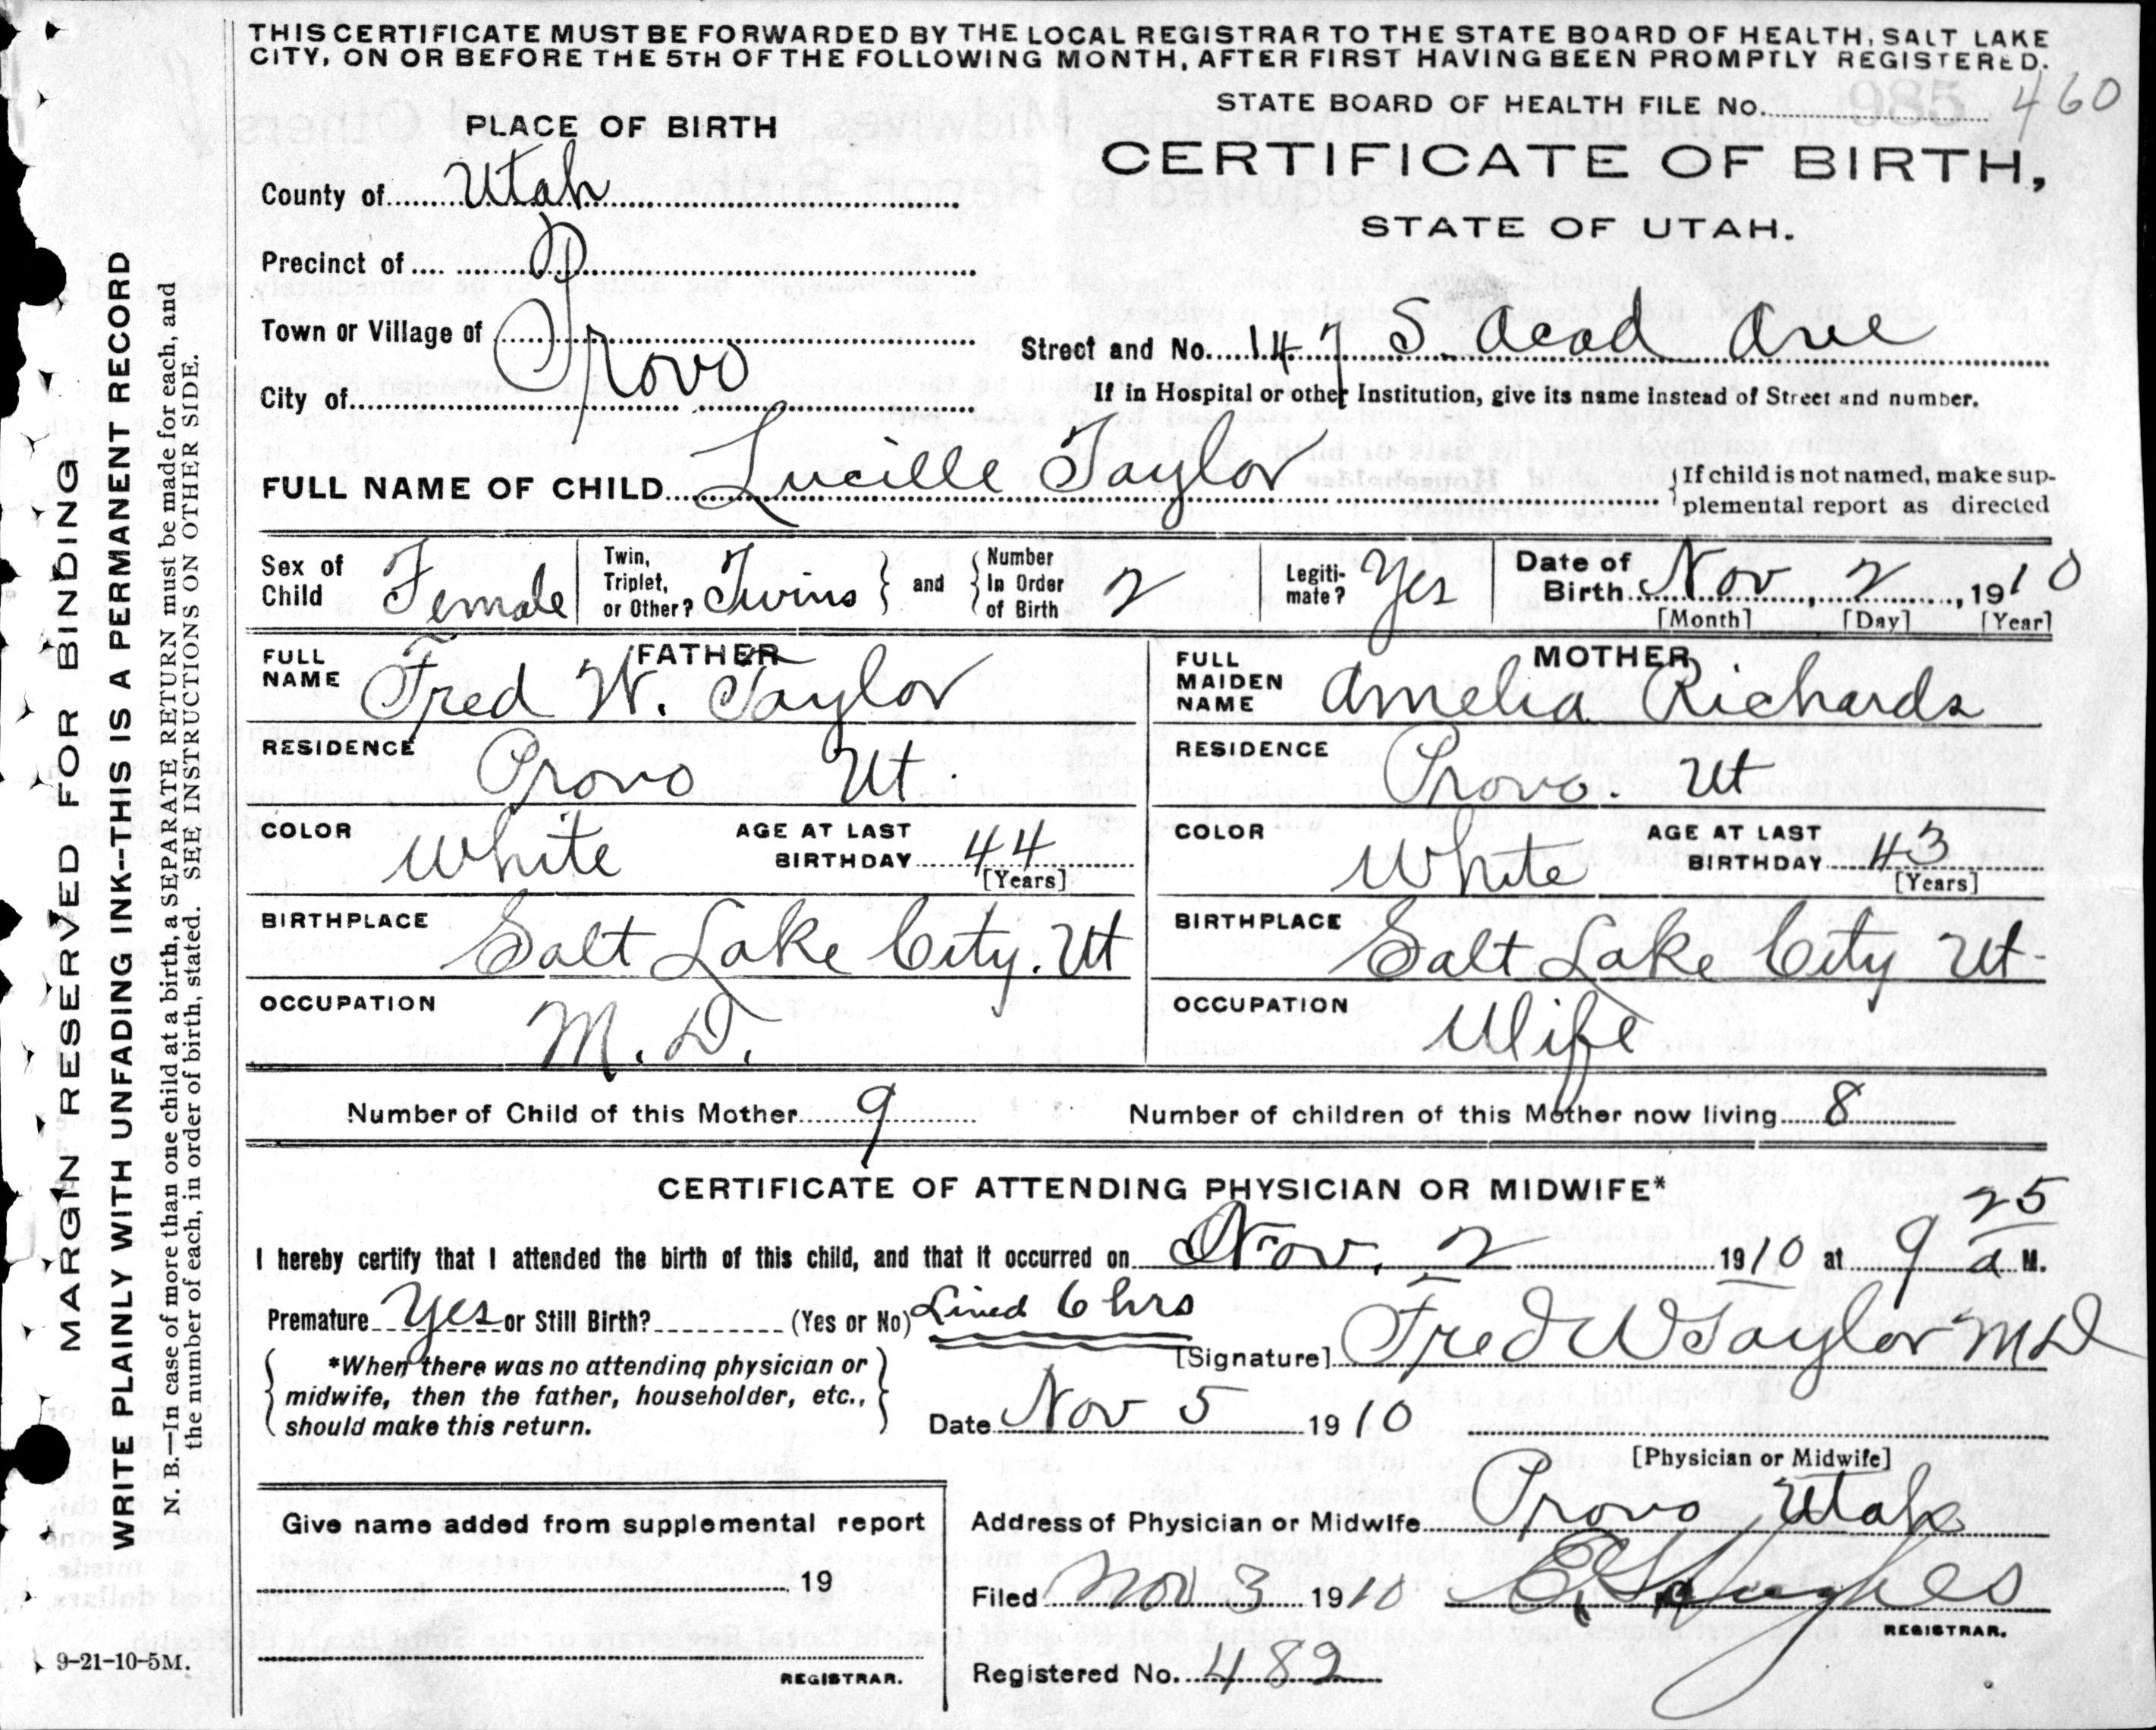 THIS CERTIFICATE MUST BE FORWARDED BY THE LOCAL REGISTRAR TO THE STATE BOARD OF HEALTH, SALT LAKE
CITY, ON OR BEFORE THE 5TH OF THE FOLLOWING MONTH, AFTER FIRST HAVING BEEN PROMPTLY REGISTERED.
STATE BOARD OF HEALTH FILE No. 985 460
PLACE OF BIRTH
CERTIFICATE OF BIRTH,
STATE OF UTAH.
County of Utah
Precinct of
Town or Village of
City of Provo
Street and No. 147 S Acad Ave
If in Hospital or other Institution, give its name instead of Street and number.
FULL NAME OF CHILD Lucille Taylor
If child is not named, make sup-
plemental report as directed
Sex of Child Female
Twin, Triplet, or Other? Twins
and
Number in Order of Birth 2
Legiti-mate? Yes
Date of Birth Nov, 2, 1910
[Month] [Day] [Year]
FATHER
FULL NAME Fred W. Taylor
RESIDENCE Provo Ut.
COLOR White AGE AT LAST BIRTHDAY 44 [Years]
BIRTHPLACE Salt Lake City. Ut
OCCUPATION M. D.
MOTHER
FULL MAIDEN NAME Amelia Richards
RESIDENCE Provo. Ut
COLOR White AGE AT LAST BIRTHDAY 43 [Years]
BIRTHPLACE Salt Lake City Ut-
OCCUPATION Wife
Number of Child of this Mother 9
Number of children of this Mother now living 8
CERTIFICATE OF ATTENDING PHYSICIAN OR MIDWIFE*
I hereby certify that I attended the birth of this child, and that it occurred on Nov. 2 1910 at 9 25 a M.
Premature Yes or Still Birth? (Yes or No) Lived 6 hrs
[Signature] Fred W Taylor MD
*When there was no attending physician or
midwife, then the father, householder, etc.,
should make this return.
Date Nov 5 1910
[Physician or Midwife]
Give name added from supplemental report
19
REGISTRAR.
Address of Physician or Midwife Provo Utah
Filed Nov 3 1910 Hughes
REGISTRAR.
Registered No. 482
MARGIN RESERVED FOR BINDING
WRITE PLAINLY WITH UNFADING INK--THIS IS A PERMANENT RECORD
N. B.—In case of more than one child at a birth, a SEPARATE RETURN must be made for each, and
the number of each, in order of birth, stated. SEE INSTRUCTIONS ON OTHER SIDE.
9-21-10-5M.